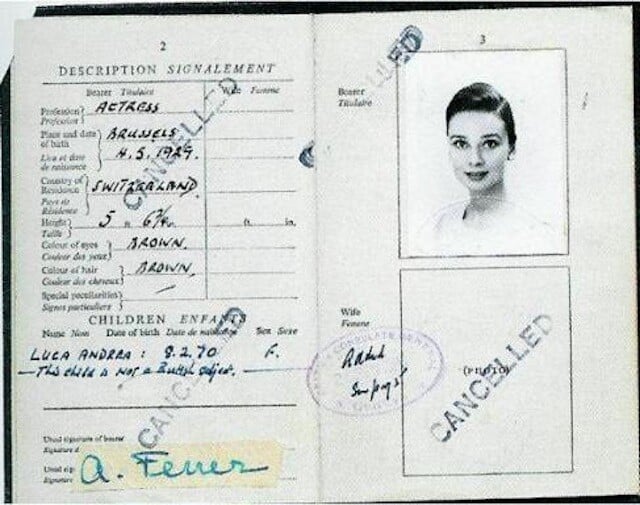 2
DESCRIPTION SIGNALEMENT
Bearer Titulaire Wife Femme
Profession Profession } ACTRESS
Place and date of birth } BRUSSELS
Lieu et date de naissance } 4.5.1929.
Country of Residence } SWITZERLAND
Pays de Résidence
Height Taille } 5 6¾ ft. in.
Colour of eyes Couleur des yeux } BROWN.
Colour of hair Couleur des cheveux } BROWN.
Special peculiarities Signes particuliers } —
CANCELLED
CHILDREN ENFANTS
Name Nom Date of birth Date de naissance Sex Sexe
LUCA ANDREA : 8.2.70 F.
— This child is not a British subject. —
CANCELLED
Usual signature of bearer
Signature d
Usual sig
Signature
A. Ferrer
3
CANCELLED
Bearer
Titulaire
Wife
Femme
(PHOTO)
CANCELLED